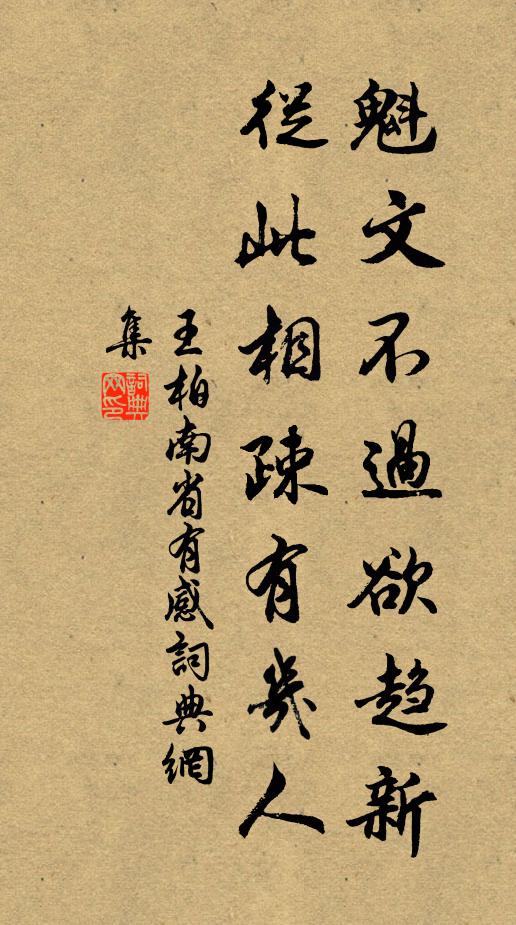 魁文不過欲趋新
從此相疎有幾人
王柏南省有感詞典網
集
詞典網印